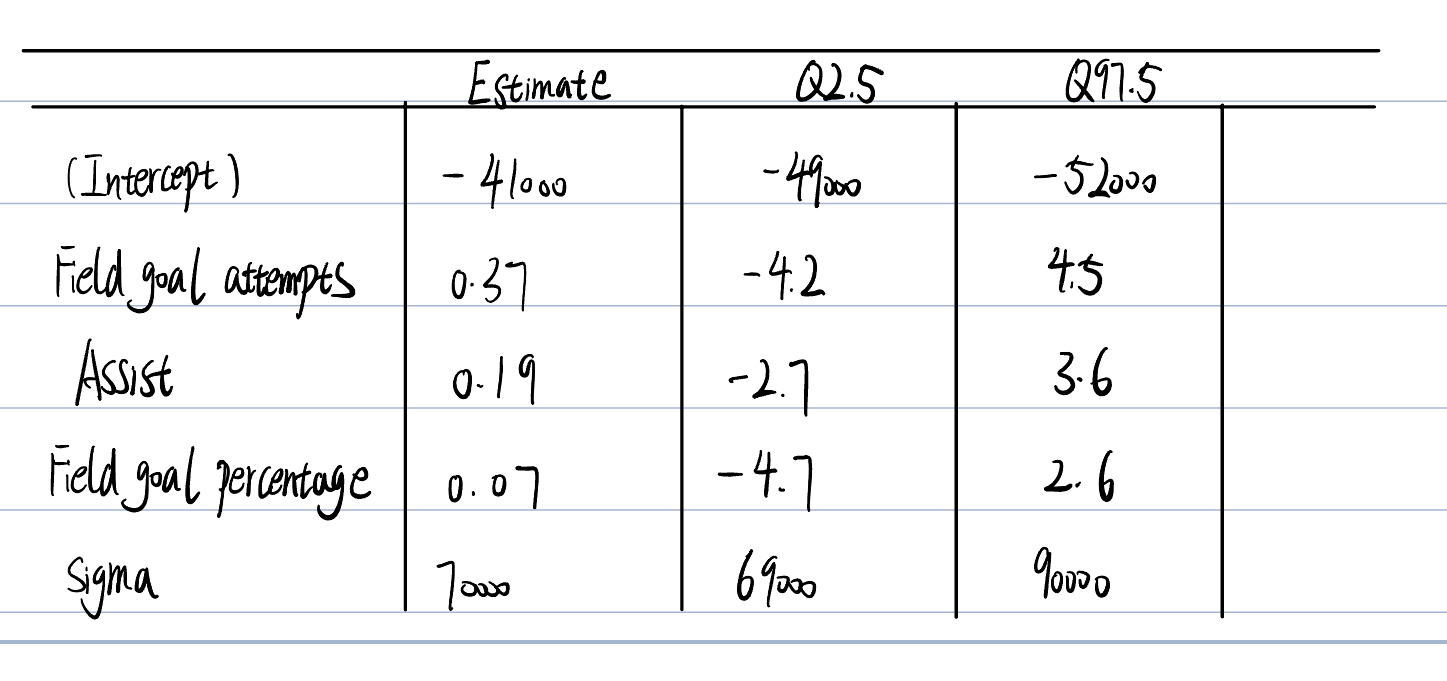 Estimate Q2.5 Q97.5
(Intercept) -41000 -49000 -52000
Field goal attempts 0.37 -4.2 4.5
Assist 0.19 -2.7 3.6
Field goal percentage 0.07 -4.7 2.6
Sigma 70000 69000 90000